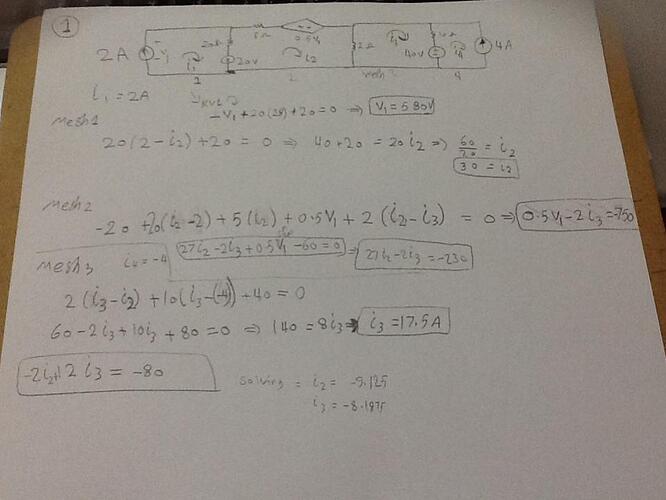 1
5Ω 0.5V₁
2A V₁ 20Ω 20V i₁ i₂ 2Ω i₃ 40V i₄ 4A
1 2 mesh 3 4
i₁ = 2A
KVL
-V₁ + 20(28) + 20 = 0 ⇒ V₁ = 580V
Mesh1
20(2 - i₂) + 20 = 0 ⇒ 40 + 20 = 20i₂ ⇒ 60/20 = i₂
30 = i₂
Mesh2
-20 + 20(i₂ - 2) + 5(i₂) + 0.5V₁ + 2(i₂ - i₃) = 0 ⇒ 0.5V₁ - 2i₃ = -750
27i₂ - 2i₃ + 0.5V₁ - 60 = 0 ⇒ 27i₂ - 2i₃ = -230
Mesh3 i₄ = -4
2(i₃ - i₂) + 10(i₃ - (-4)) + 40 = 0
60 - 2i₃ + 10i₃ + 80 = 0 ⇒ 140 = 8i₃ ⇒ i₃ = 17.5A
-2i₂ + 12i₃ = -80
solving = i₂ = -9.125
i₃ = -8.1875